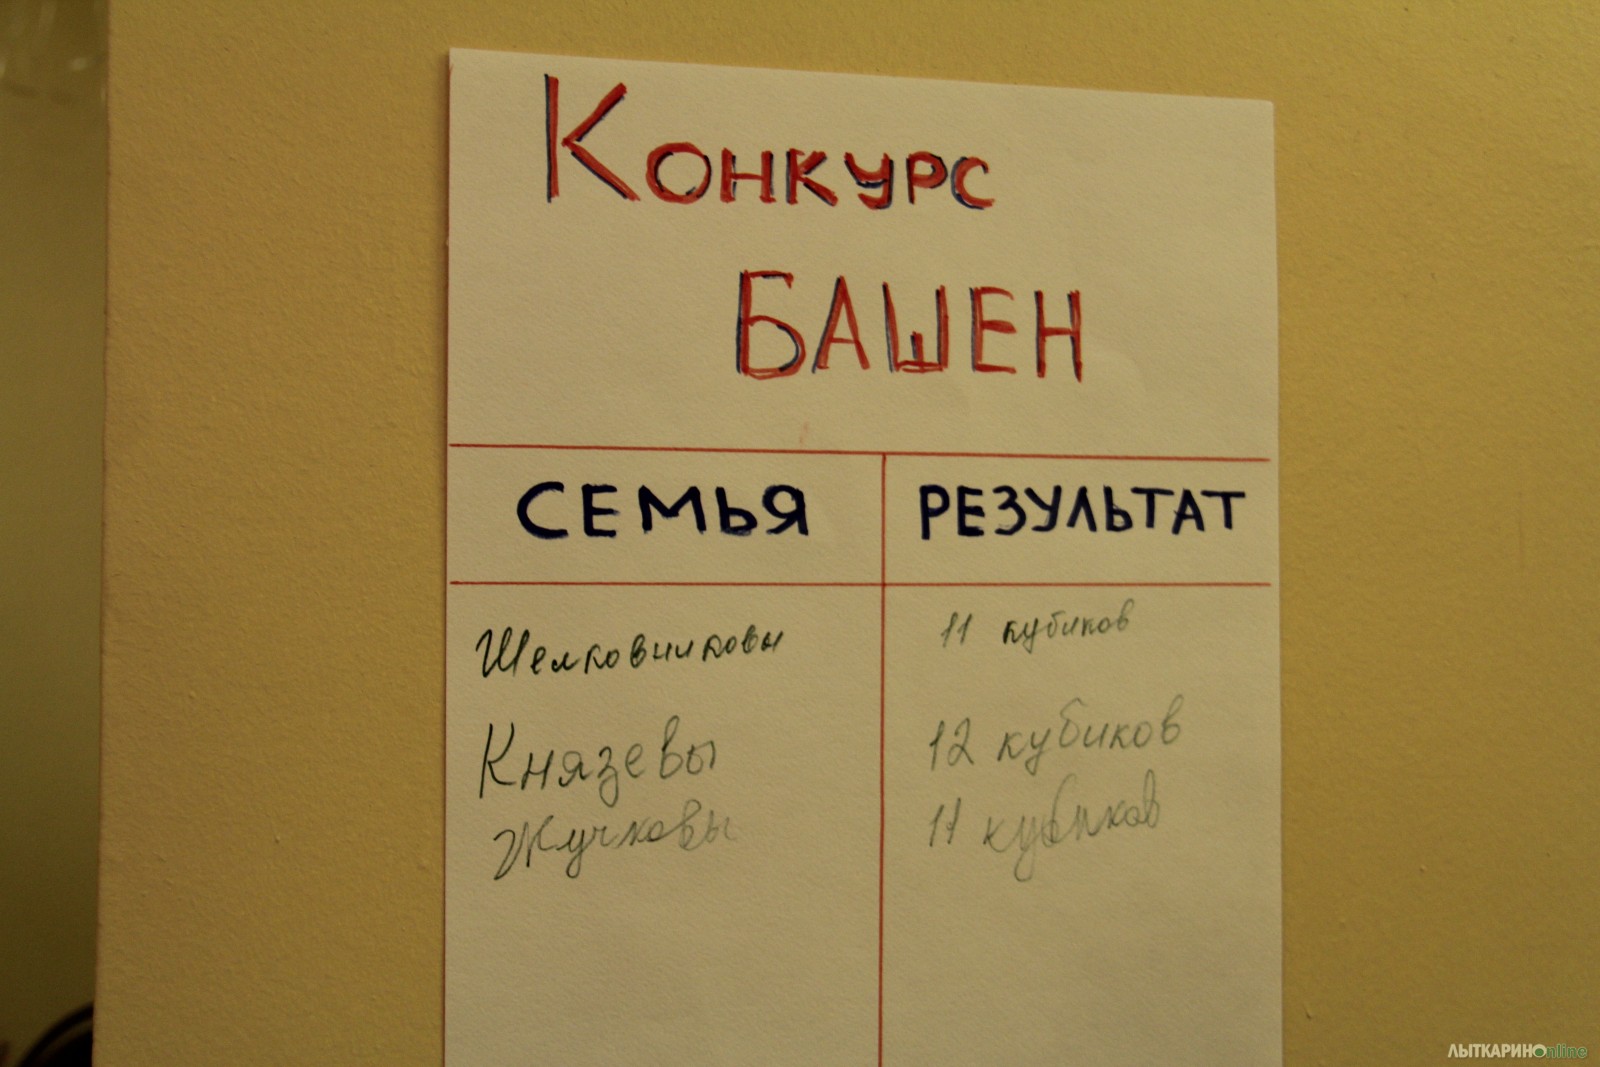 Конкурс
БАШЕН
СЕМЬЯ РЕЗУЛЬТАТ
Шелковниковы 11 кубиков
Князевы 12 кубиков
Жучковы 11 кубиков
ЛЫТКАРИНОonline